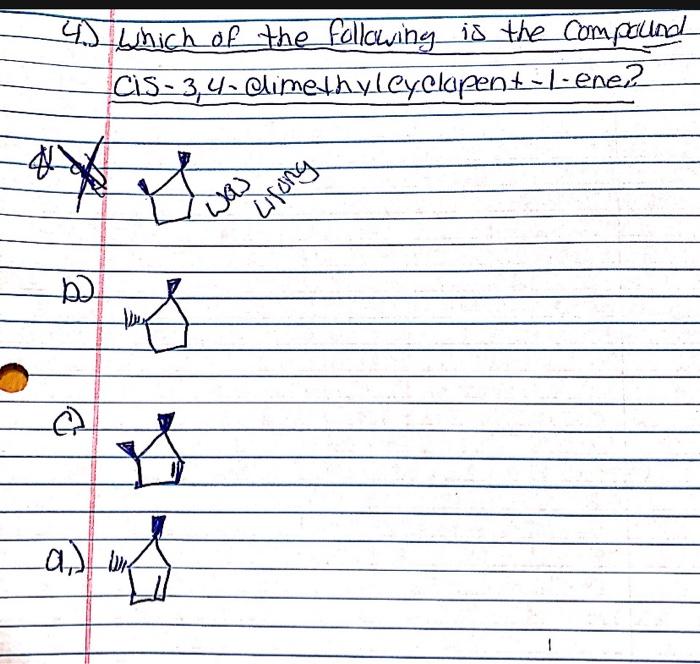 4.) Which of the following is the compound
cis-3,4-dimethylcyclopent-1-ene?
was
wrong
b)
c)
a.)